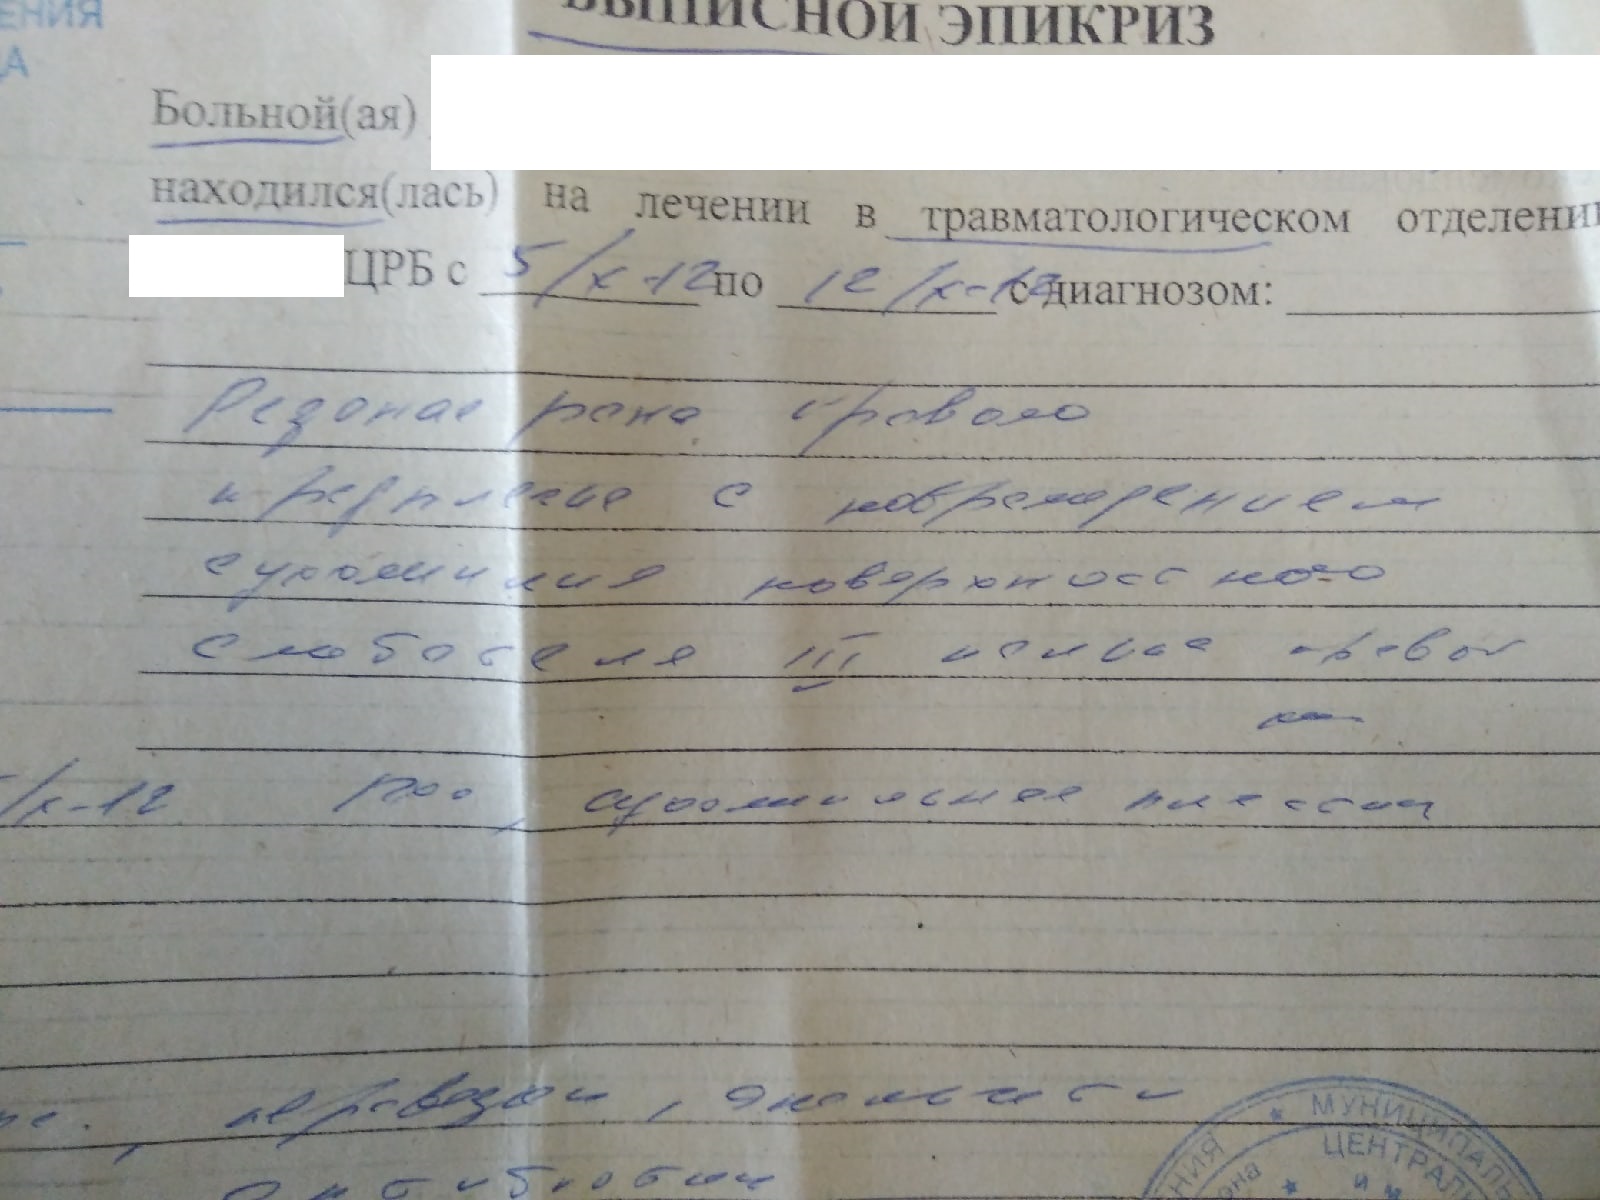 ЕНИЯ
ВЫПИСНОЙ ЭПИКРИЗ
Больной(ая)
находился(лась) на лечении в травматологическом отделени
ЦРБ с 5/х-12 по 12/х-12 с диагнозом:
Резаная рана правого
предплечья с повреждением
сухожилия поверхностного
сгибателя III пальца правой
кисти
/х-12 ПХО, сухожильная пластика
перевязки, анальгетики
антибиотики
МУНИЦИПАЛЬ
ЦЕНТРАЛ
ЕНИЯ
она
им